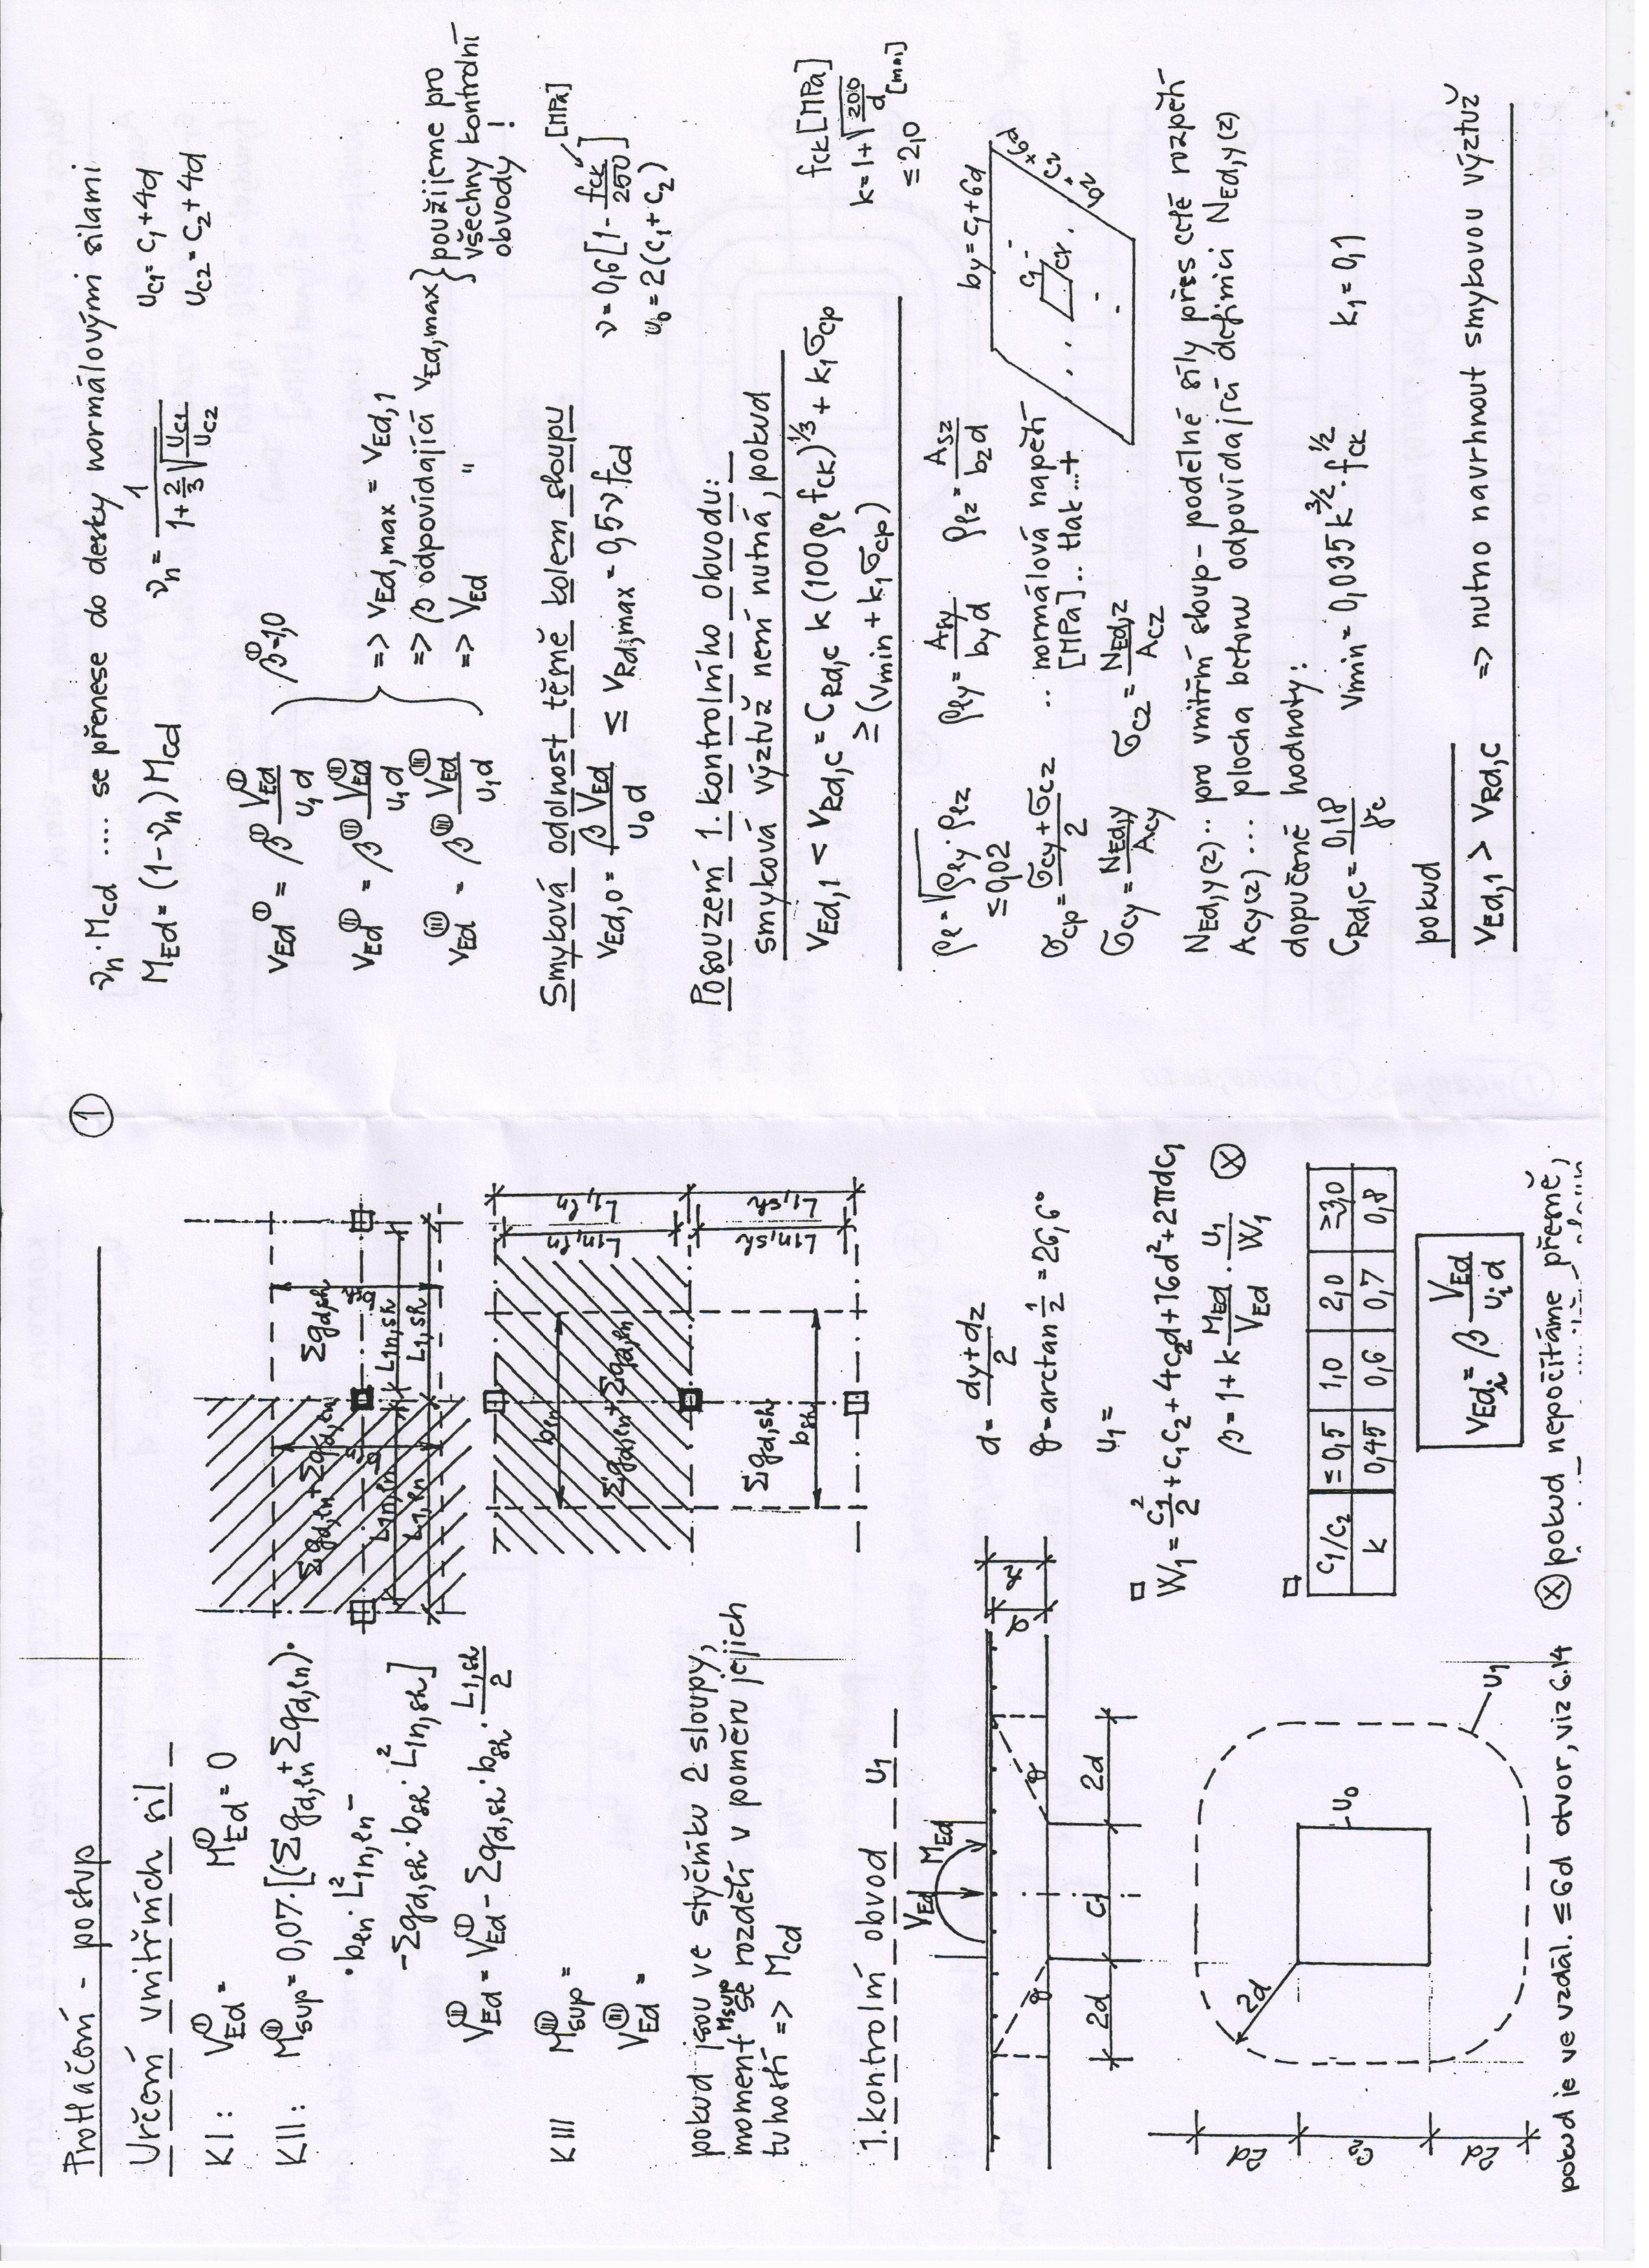 ①
Protlačení - postup
Určení vnitřních sil
KI: V_Ed^Ⓘ = M_Ed^Ⓘ = 0
KII: M_sup^Ⓘⓘ = 0,07·[(Σg_d,ln + Σq_d,ln)·
·b_ln·L²_1n,ln -
-Σg_d,sh·b_sh·L²_1n,sh]
V_Ed^Ⓘⓘ = V_Ed^Ⓘ - Σq_d,sh·b_sh·L_1,sh/2
KIII M_sup^(III) =
V_Ed^(III) =
pokud jsou ve styčníku 2 sloupy,
moment M_sup se rozdělí v poměru jejich
tuhostí => M_cd
Σg_d,ln + Σq_d,ln
Σg_d,sh
L_1n,ln
L_1n,sh
L_1,ln
L_1,sh
b_ln
Σg_d,ln + Σq_d,ln
Σg_d,sh
b_sh
L_1n,ln
L_1,ln
L_1n,sh
L_1,sh
1. kontrolní obvod u_1
V_Ed M_Ed
θ θ
2d c_1 2d
d
d = (d_y + d_z)/2
θ = arctan 1/2 = 26,6°
u_1 =
W_1 = c_1²/2 + c_1c_2 + 4c_2d + 16d² + 2πdc_1
β = 1 + k M_Ed/V_Ed · u_1/W_1 ⊗
c_1/c_2 ≤0,5 1,0 2,0 ≥3,0
k 0,45 0,6 0,7 0,8
v_Ed,i = β V_Ed/(u_i d)
2d c_2 2d
2d u_0 u_1
pokud je ve vzdál. ≤ 6d otvor, viz 6.14
⊗ pokud nepočítáme přesně,
ν_n·M_cd .... se přenese do desky normálovými silami
M_Ed = (1-ν_n)M_cd ν_n = 1/(1 + 2/3 √(u_c1/u_c2)) u_c1 = c_1 + 4d
u_c2 = c_2 + 4d
v_Ed^Ⓘ = β^Ⓘ V_Ed^Ⓘ/(u_1 d) β^Ⓘ = 1,0
v_Ed^(II) = β^(II) V_Ed^(II)/(u_1 d) => v_Ed,max = v_Ed,1
v_Ed^(III) = β^(III) V_Ed^(III)/(u_1 d) => β odpovídající v_Ed,max
=> V_Ed "
použijeme pro
všechny kontrolní
obvody !
Smyková odolnost těsně kolem sloupu
v_Ed,0 = β V_Ed/(u_0 d) ≤ v_Rd,max = 0,5 ν f_cd ν = 0,6[1 - f_ck/250] [MPa]
u_0 = 2(c_1 + c_2)
Posouzení 1. kontrolního obvodu:
smyková výztuž není nutná, pokud
v_Ed,1 < v_Rd,c = C_Rd,c k (100 ρ_l f_ck)^1/3 + k_1 σ_cp f_ck [MPa]
≥ (v_min + k_1 σ_cp) k = 1 + √(200/d) [mm]
≤ 2,0
ρ_l = √(ρ_ly · ρ_lz) ρ_ly = A_sy/(b_y d) ρ_lz = A_sz/(b_z d) b_y = c_1 + 6d
≤ 0,02
c_1 c_2
σ_cp = (σ_cy + σ_cz)/2 .. normálová napětí
[MPa].. tlak ...+
σ_cy = N_Ed,y/A_cy σ_cz = N_Ed,z/A_cz
N_Ed,y(z) .. pro vnitřní sloup - podélné síly přes celé rozpětí
A_cy(z) .... plocha betonu odpovídající definici N_Ed,y(z)
dopučoné hodnoty:
C_Rd,c = 0,18/γ_c v_min = 0,035 k^3/2 · f_ck^1/2 k_1 = 0,1
pokud
v_Ed,1 > v_Rd,c => nutno navrhnout smykovou výztuž